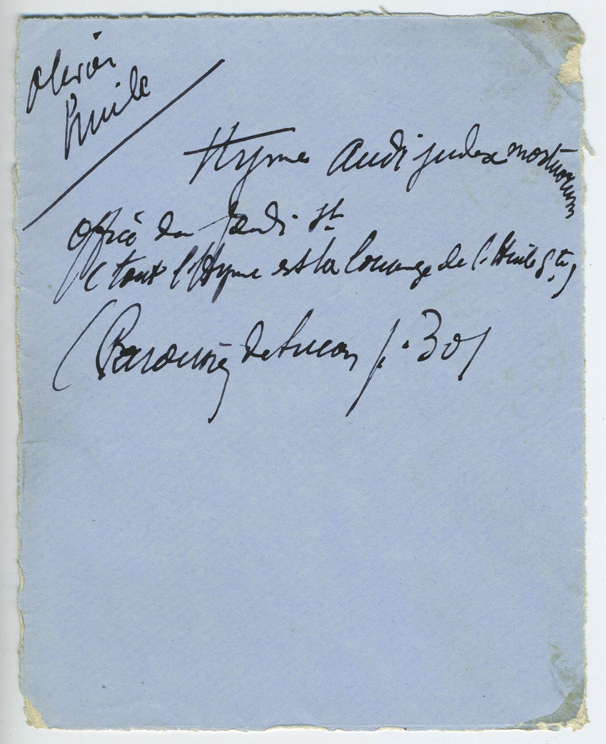 Olivier
Huile
Hymne Audi judex mortuorum
Office du Jeudi St
(tout l'Hymne est la louange de l'Huile Ste)
(Paroissien de Luçon p. 30)